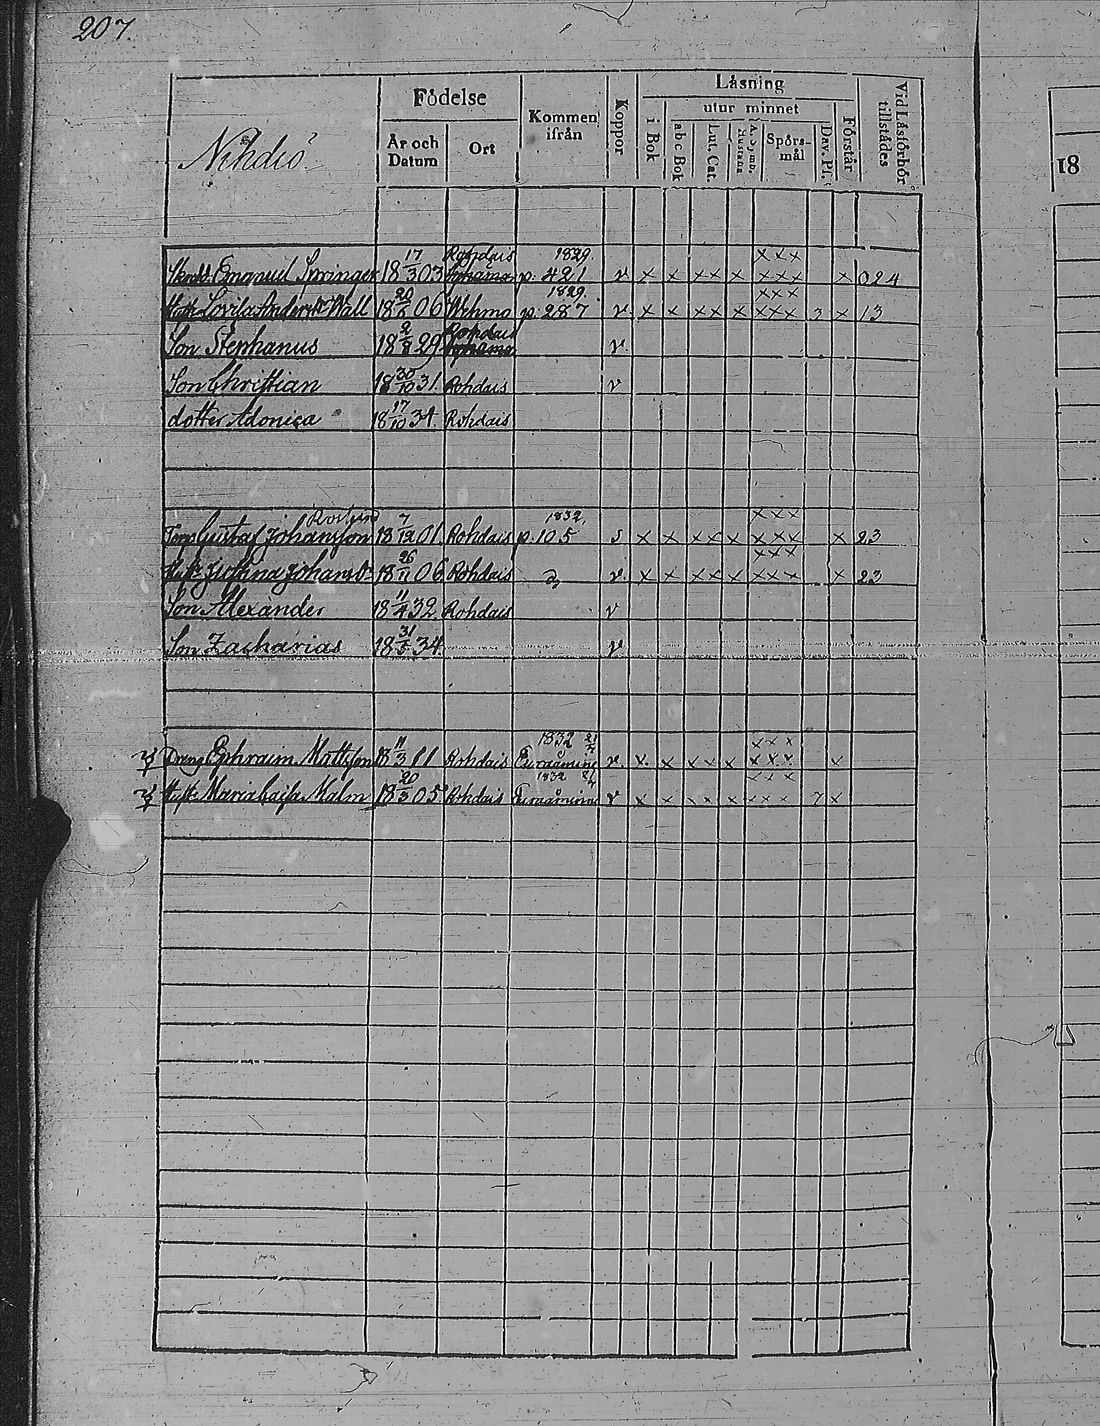 207.
Nihdiö
Födelse
År och Datum
Ort
Kommen ifrån
Koppor
Läsning
i Bok
utur minnet
abc Bok
Lut. Cat.
Spörs-mål
Dav. Ps.
Förstår
Vid Läsförhör tillstädes
18
Emanuel Springer 18 17/3 03 Rohdais 1829. p. 421 v x x xx x xxx xxx x 024
Lovisa Anders Dr Wall 18 20/6 06 Wehmo 1829 p. 287 v x x xx x xxx xxx 3 x 13
Son Stephanus 18 2/8 29 Rohdais v
Son Christian 18 30/10 31. Rohdais v
dotter Adonica 18 17/10 34. Rohdais
Torp Gustaf Johansson 18 7/12 01. Rohdais 1832. p. 105 s x x xx x xxx xxx x 23
Johans Dr 18 26/11 06 Rohdais do v. x x xx x xxx xxx x 23
Son Alexander 18 11/4 32. Rohdais v
Son Zacharias 18 31/5 34. v
Dreng Ephraim Mattsson 18 11/3 11 Rohdais 1832 Euraåminne v x x xx x xxx xxx x
Maria Caisa Malm 18 20/3 05 Rohdais 1832 Euraåminne v x x xx x xxx xxx 7 x